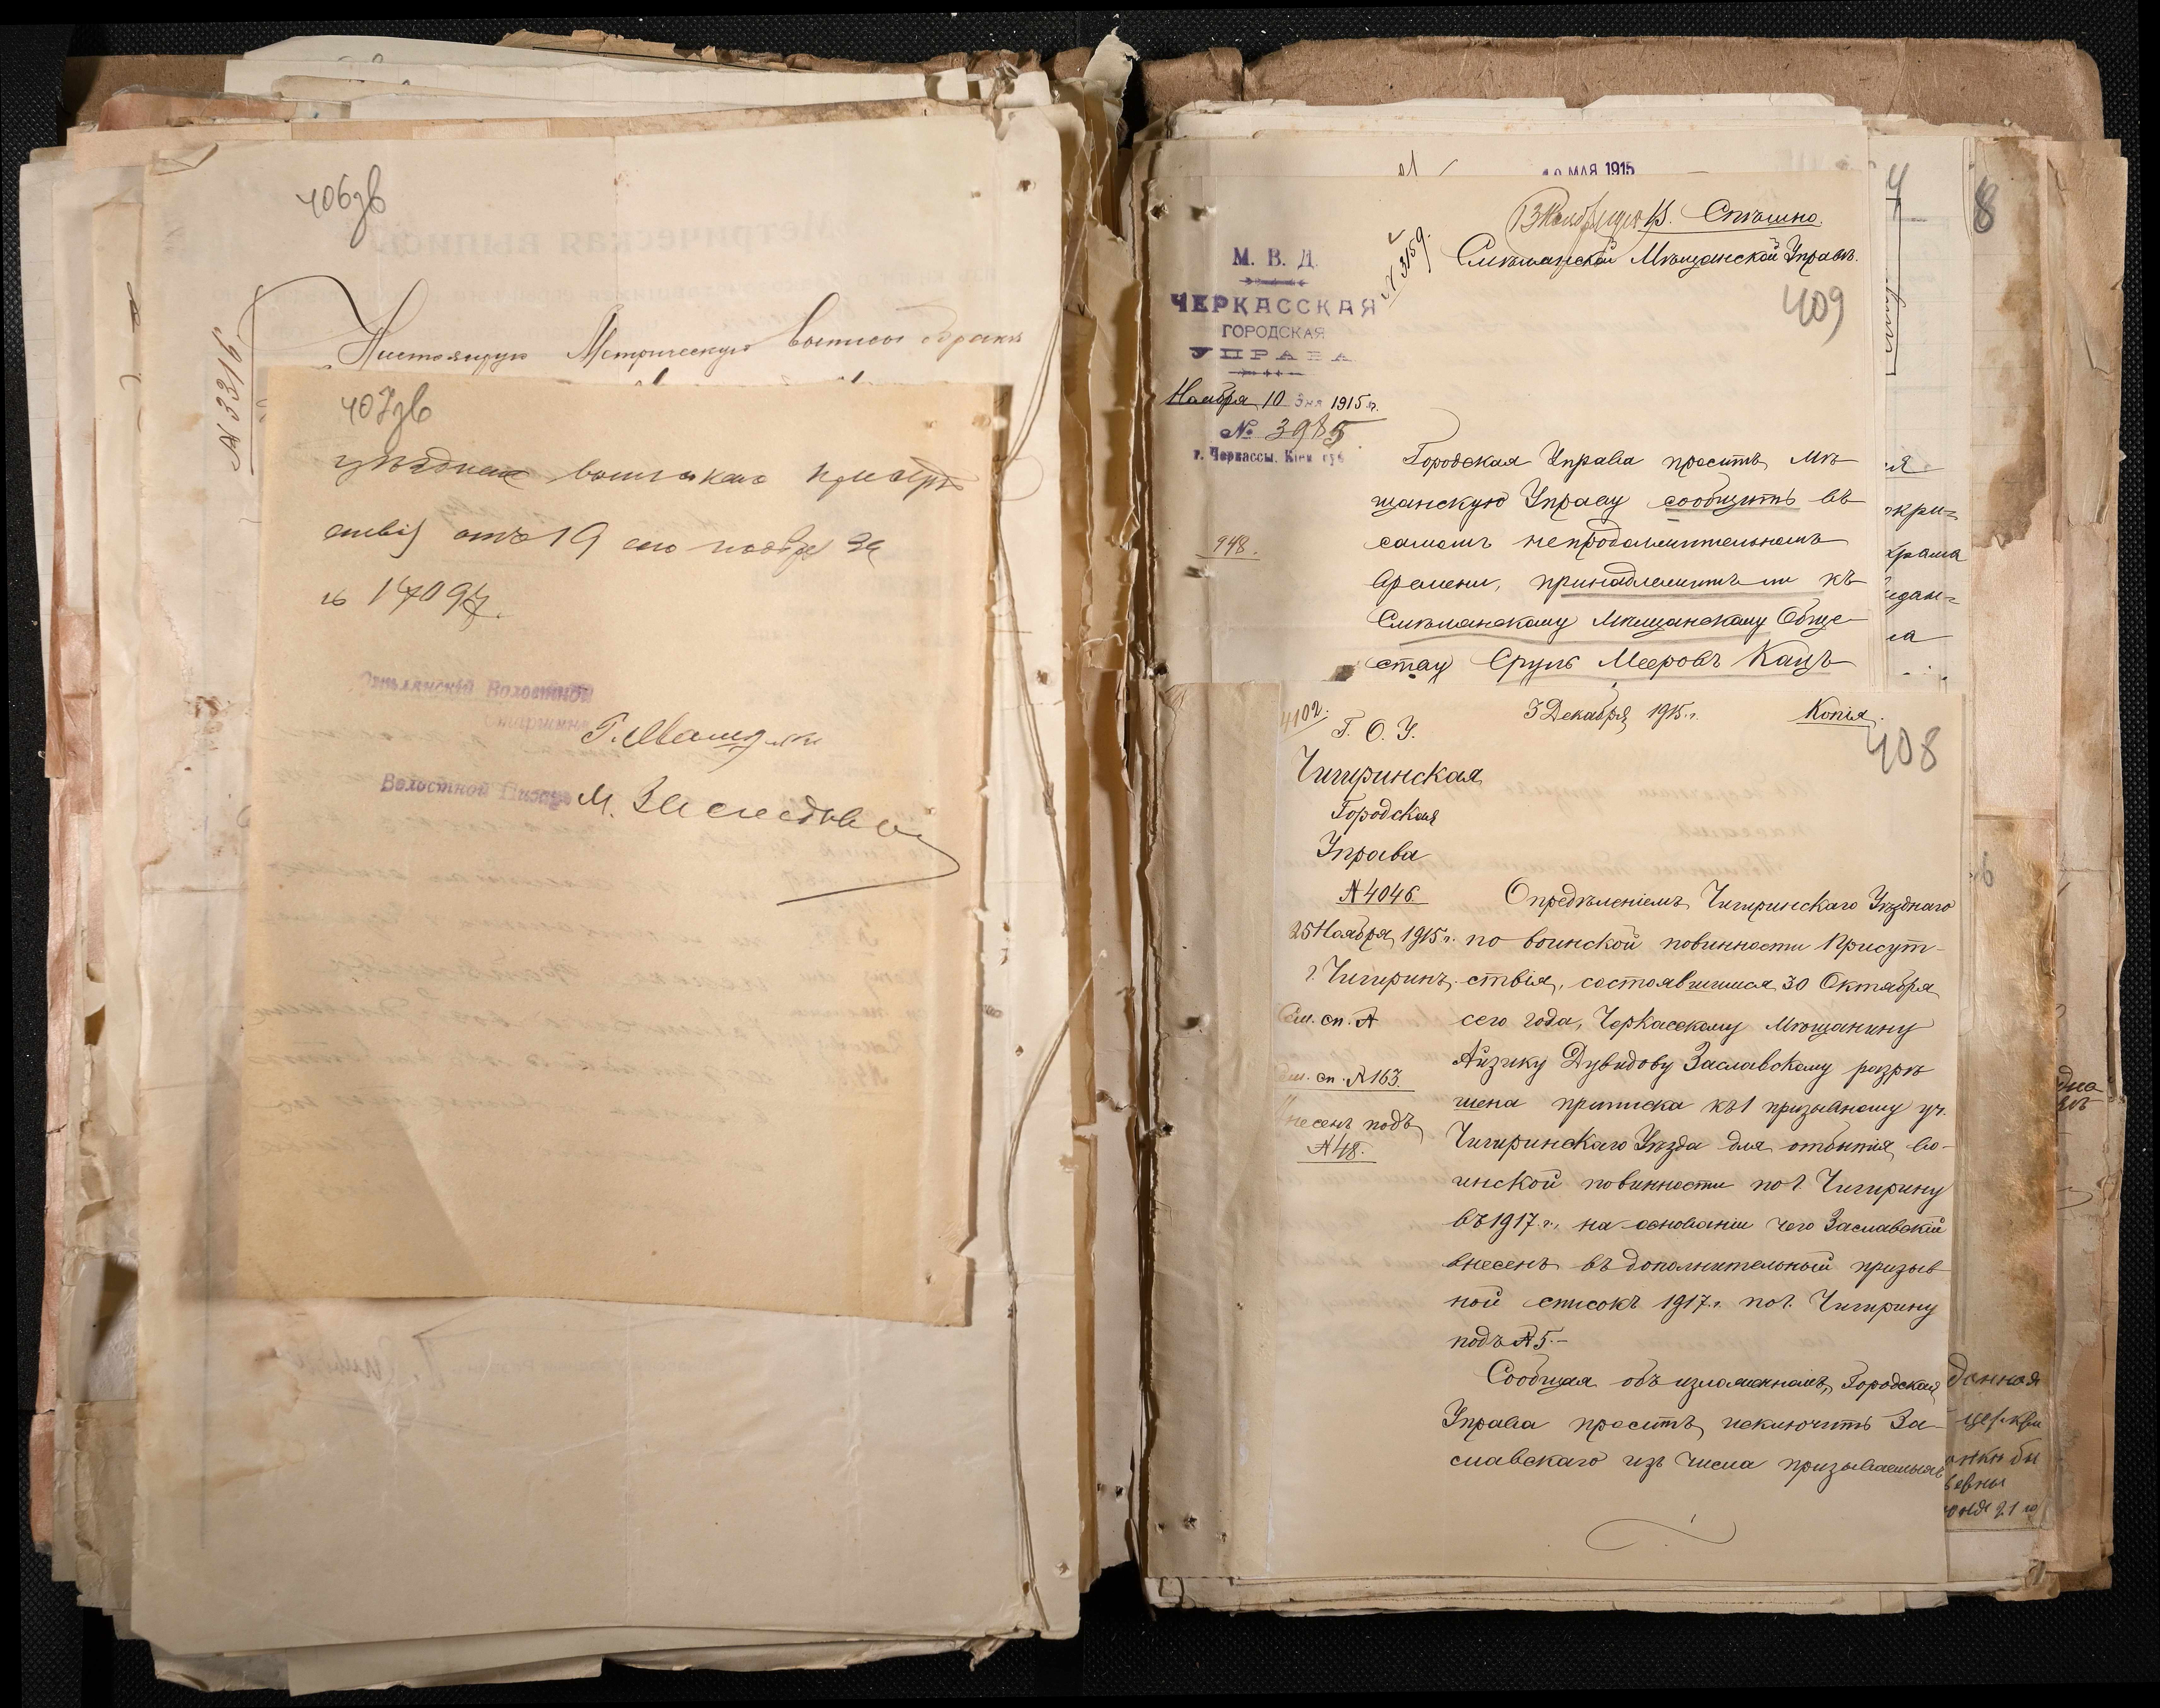 406зв
№ 3316
Настоящую Метрическую выписъ о бракѣ
407зв
уѣзднаго воинскаго присут
ствія отъ 19 сего ноября за
№ 17097.
Волостной
Старшина
Волостной Писарь
М.
10 МАЯ 1915
8
13 Ноября 1915. Спѣшно.
№ 3159.
Смѣлянской Мѣщанской Управѣ.
409
М. В. Д.
ЧЕРКАССКАЯ
ГОРОДСКАЯ
УПРАВА
Ноября 10 дня 1915 г.
№ 3985
г. Черкассы, Кіев. губ.
948.
Городская Управа проситъ Мѣ-
щанскую Управу сообщить въ
самомъ непродолжительномъ
времени, принадлежитъ ли къ
Смѣлянскому Мѣщанскому Обще-
ству Сруль Мееровъ Кацъ
4102.
3 Декабря 1915 г. Копія.
408
Г. О. У.
Чигиринская
Городская
Управа
№ 4046.
25 Ноября 1915 г.
г. Чигиринъ.
Сем. сп. №
Сем. сп. № 163.
Внесенъ подъ
№ 48.
Опредѣленіемъ Чигиринскаго Уѣзднаго
по воинской повинности Присут-
ствія, состоявшимся 30 Октября
сего года, Черкасскому Мѣщанину
Айзику Дувидову Заславскому разрѣ
шена приписка къ 1 призывному уч.
Чигиринскаго Уѣзда для отбытія во-
инской повинности по г. Чигирину
въ 1917 г., на основаніи чего Заславскій
внесенъ въ дополнительный призыв
ной списокъ 1917 г. по г. Чигирину
подъ № 5.-
Сообщая объ изложенномъ, Городская
Управа проситъ исключить За-
славскаго изъ числа призываемыхъ